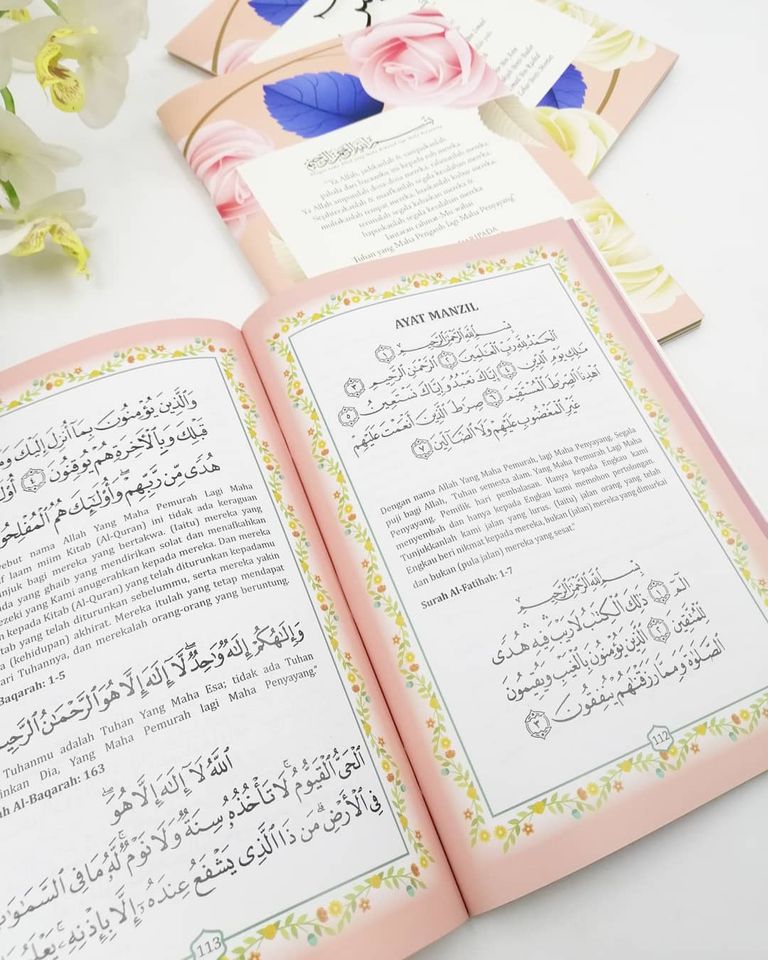 بِسْمِ اللَّهِ الرَّحْمَٰنِ الرَّحِيمِ
"Ya Allah, jadikanlah & sampaikanlah
pahala dan bacaanku ini kepada roh mereka.
Ya Allah ampunilah dosa-dosa mereka, rahmatilah mereka.
Sejahterakanlah & maafkanlah segala kesalahan mereka.
muliakanlah tempat mereka, luaskanlah kubur mereka
terimalah segala kebaikan mereka &
lupuskanlah segala kesalahan mereka
lantaran rahmat-Mu wahai
Tuhan yang Maha Pengasih lagi Maha Penyayang"
DARIPADA
AYAT MANZIL
بِسْمِ اللَّهِ الرَّحْمَٰنِ الرَّحِيمِ ١
الْحَمْدُ لِلَّهِ رَبِّ الْعَالَمِينَ ٢ الرَّحْمَٰنِ الرَّحِيمِ ٣
مَالِكِ يَوْمِ الدِّينِ ٤ إِيَّاكَ نَعْبُدُ وَإِيَّاكَ نَسْتَعِينُ ٥
اهْدِنَا الصِّرَاطَ الْمُسْتَقِيمَ ٦ صِرَاطَ الَّذِينَ أَنْعَمْتَ عَلَيْهِمْ
غَيْرِ الْمَغْضُوبِ عَلَيْهِمْ وَلَا الضَّالِّينَ ٧
Dengan nama Allah Yang Maha Pemurah, lagi Maha Penyayang. Segala
puji bagi Allah, Tuhan semesta alam. Yang Maha Pemurah Lagi Maha
Penyayang. Pemilik hari pembalasan. Hanya kepada Engkau kami
menyembah dan hanya kepada Engkau kami memohon pertolongan.
Tunjukkanlah kami jalan yang lurus. (Iaitu) jalan orang yang telah
Engkau beri nikmat kepada mereka, bukan (jalan) mereka yang dimurkai
dan bukan (pula jalan) mereka yang sesat."
Surah Al-Fatihah: 1-7
بِسْمِ اللَّهِ الرَّحْمَٰنِ الرَّحِيمِ
الم ١ ذَٰلِكَ الْكِتَابُ لَا رَيْبَ فِيهِ هُدًى
لِّلْمُتَّقِينَ ٢ الَّذِينَ يُؤْمِنُونَ بِالْغَيْبِ وَيُقِيمُونَ
الصَّلَاةَ وَمِمَّا رَزَقْنَاهُمْ يُنفِقُونَ ٣
112
وَالَّذِينَ يُؤْمِنُونَ بِمَا أُنزِلَ إِلَيْكَ
قَبْلِكَ وَبِالْآخِرَةِ هُمْ يُوقِنُونَ ٤
هُدًى مِّن رَّبِّهِمْ وَأُولَٰئِكَ هُمُ الْمُفْلِحُو
ebut nama Allah Yang Maha Pemurah Lagi Maha
f laam miim Kitab (Al-Quran) ini tidak ada keraguan
unjuk bagi mereka yang bertakwa. (Iaitu) mereka yang
ada yang ghaib yang mendirikan solat dan menafkahkan
ezeki yang Kami anugerahkan kepada mereka. Dan mereka
n kepada Kitab (Al-Quran) yang telah diturunkan kepadamu
tab yang telah diturunkan sebelummu, serta mereka yakin
a (kehidupan) akhirat. Mereka itulah yang tetap mendapat
ari Tuhannya, dan merekalah orang-orang yang beruntung.
Baqarah: 1-5
وَإِلَٰهُكُمْ إِلَٰهٌ وَاحِدٌ لَّا إِلَٰهَ إِلَّا هُوَ الرَّحْمَٰنُ الرَّحِي
Tuhanmu adalah Tuhan Yang Maha Esa; tidak ada Tuhan
inkan Dia, Yang Maha Pemurah lagi Maha Penyayang."
ah Al-Baqarah: 163
اللَّهُ لَا إِلَٰهَ إِلَّا هُوَ
الْحَيُّ الْقَيُّومُ لَا تَأْخُذُهُ سِنَةٌ وَلَا نَوْمٌ لَّهُ مَا فِي السَّمَاوَا
فِي الْأَرْضِ مَن ذَا الَّذِي يَشْفَعُ عِندَهُ إِلَّا بِإِذْنِهِ
113